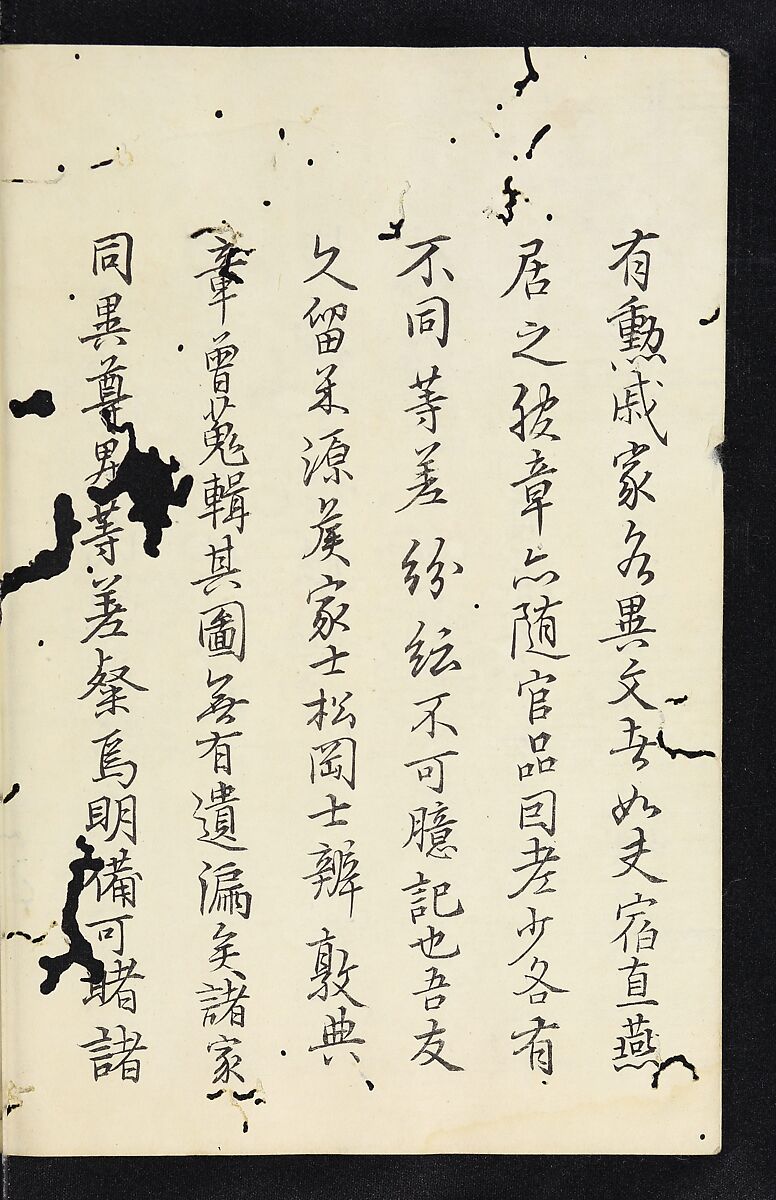 有勲戚家各異文者如夫宿直燕
居之服章亦随官品因老少各有
不同等差紛紜不可臆記也吾友
久留米源侯家士松岡士辨敦典
章曽蒐輯其圖無有遺漏矣諸家
同異尊卑等差粲焉明備可睹諸